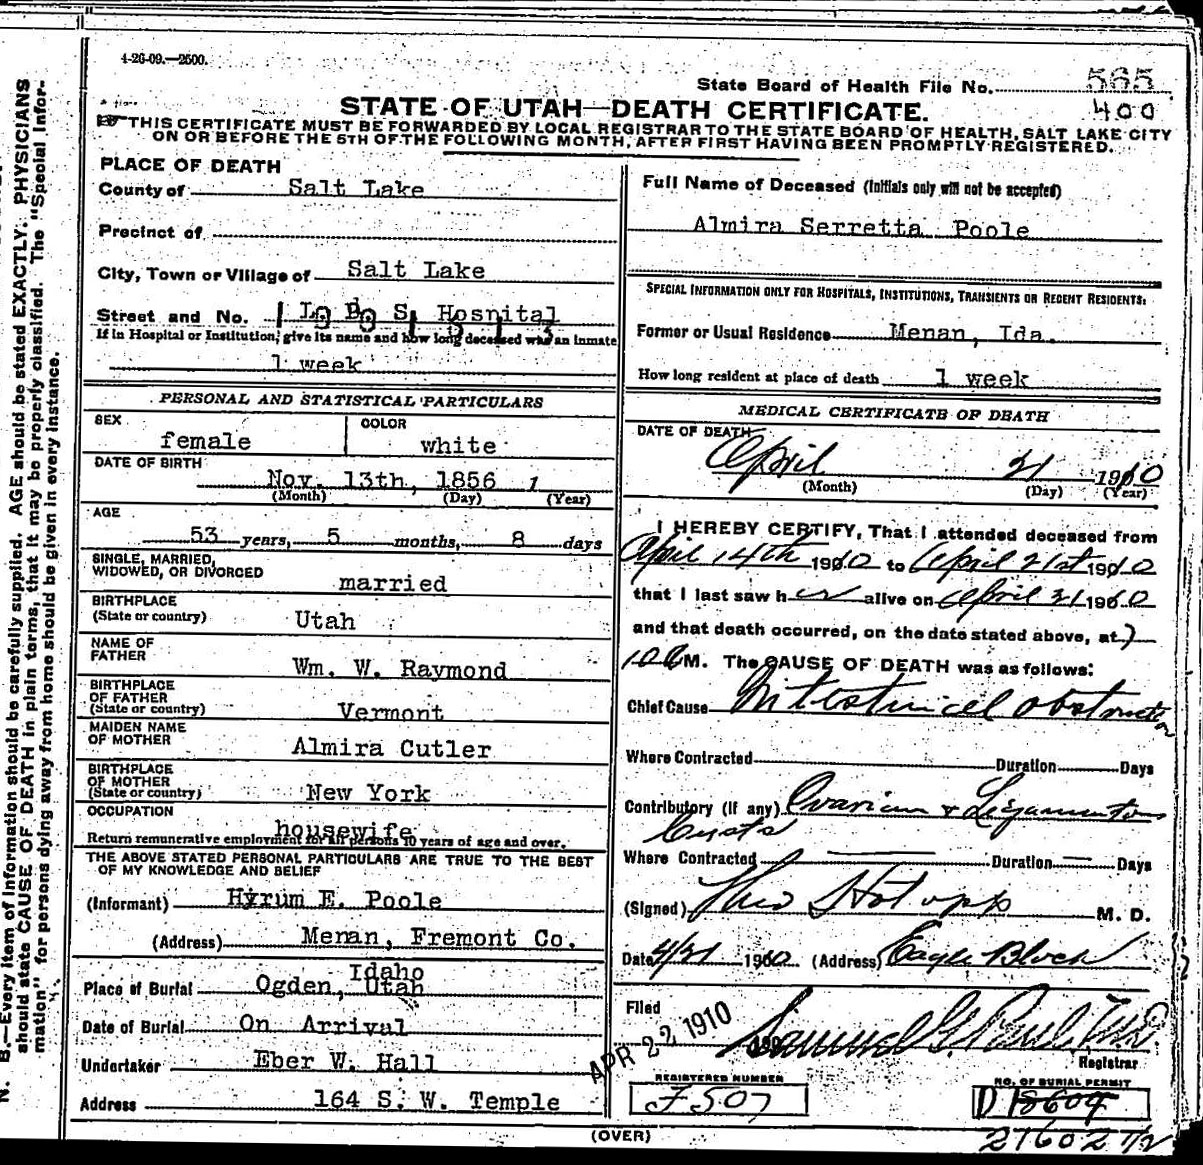 4-26-09.—2500.
State Board of Health File No. 565
400
STATE OF UTAH—DEATH CERTIFICATE.
THIS CERTIFICATE MUST BE FORWARDED BY LOCAL REGISTRAR TO THE STATE BOARD OF HEALTH, SALT LAKE CITY
ON OR BEFORE THE 5TH OF THE FOLLOWING MONTH, AFTER FIRST HAVING BEEN PROMPTLY REGISTERED.
N. B.—Every item of information should be carefully supplied. AGE should be stated EXACTLY. PHYSICIANS
should state CAUSE OF DEATH in plain terms, that it may be properly classified. The "Special Infor-
mation" for persons dying away from home should be given in every instance.
PLACE OF DEATH
County of Salt Lake
Precinct of
City, Town or Village of Salt Lake
Street and No. L D S Hospital
If in Hospital or Institution, give its name and how long deceased was an inmate
1 week
PERSONAL AND STATISTICAL PARTICULARS
SEX female COLOR white
DATE OF BIRTH
Nov. 13th, 1856
(Month) (Day) (Year)
AGE
53 years, 5 months, 8 days
SINGLE, MARRIED,
WIDOWED, OR DIVORCED married
BIRTHPLACE
(State or country) Utah
NAME OF
FATHER Wm. W. Raymond
BIRTHPLACE
OF FATHER
(State or country) Vermont
MAIDEN NAME
OF MOTHER Almira Cutler
BIRTHPLACE
OF MOTHER
(State or country) New York
OCCUPATION
housewife
Return remunerative employment for all persons 10 years of age and over.
THE ABOVE STATED PERSONAL PARTICULARS ARE TRUE TO THE BEST
OF MY KNOWLEDGE AND BELIEF
(Informant) Hyrum E. Poole
(Address) Menan, Fremont Co.
Idaho
Place of Burial Ogden, Utah
Date of Burial On Arrival
Undertaker Eber W. Hall
Address 164 S. W. Temple
Full Name of Deceased (Initials only will not be accepted)
Almira Serretta Poole
SPECIAL INFORMATION ONLY FOR HOSPITALS, INSTITUTIONS, TRANSIENTS OR RECENT RESIDENTS:
Former or Usual Residence Menan, Ida.
How long resident at place of death 1 week
MEDICAL CERTIFICATE OF DEATH
DATE OF DEATH
April 21 1910
(Month) (Day) (Year)
I HEREBY CERTIFY, That I attended deceased from
April 14th 1910 to April 21st 1910
that I last saw her alive on April 21 1910
and that death occurred, on the date stated above, at 7
M. The CAUSE OF DEATH was as follows:
Chief Cause Intestinal obstruction
Where Contracted Duration Days
Contributory (if any) Ovarian & Ligamentous
Cysts
Where Contracted Duration Days
(Signed) Theo Hotopp M. D.
Date 4/21 1910 (Address) Eagle Block
Filed
APR 22 1910 Samuel G. Paul, M.D.
Registrar
REGISTERED NUMBER
F 507
NO. OF BURIAL PERMIT
D 18609
(OVER)